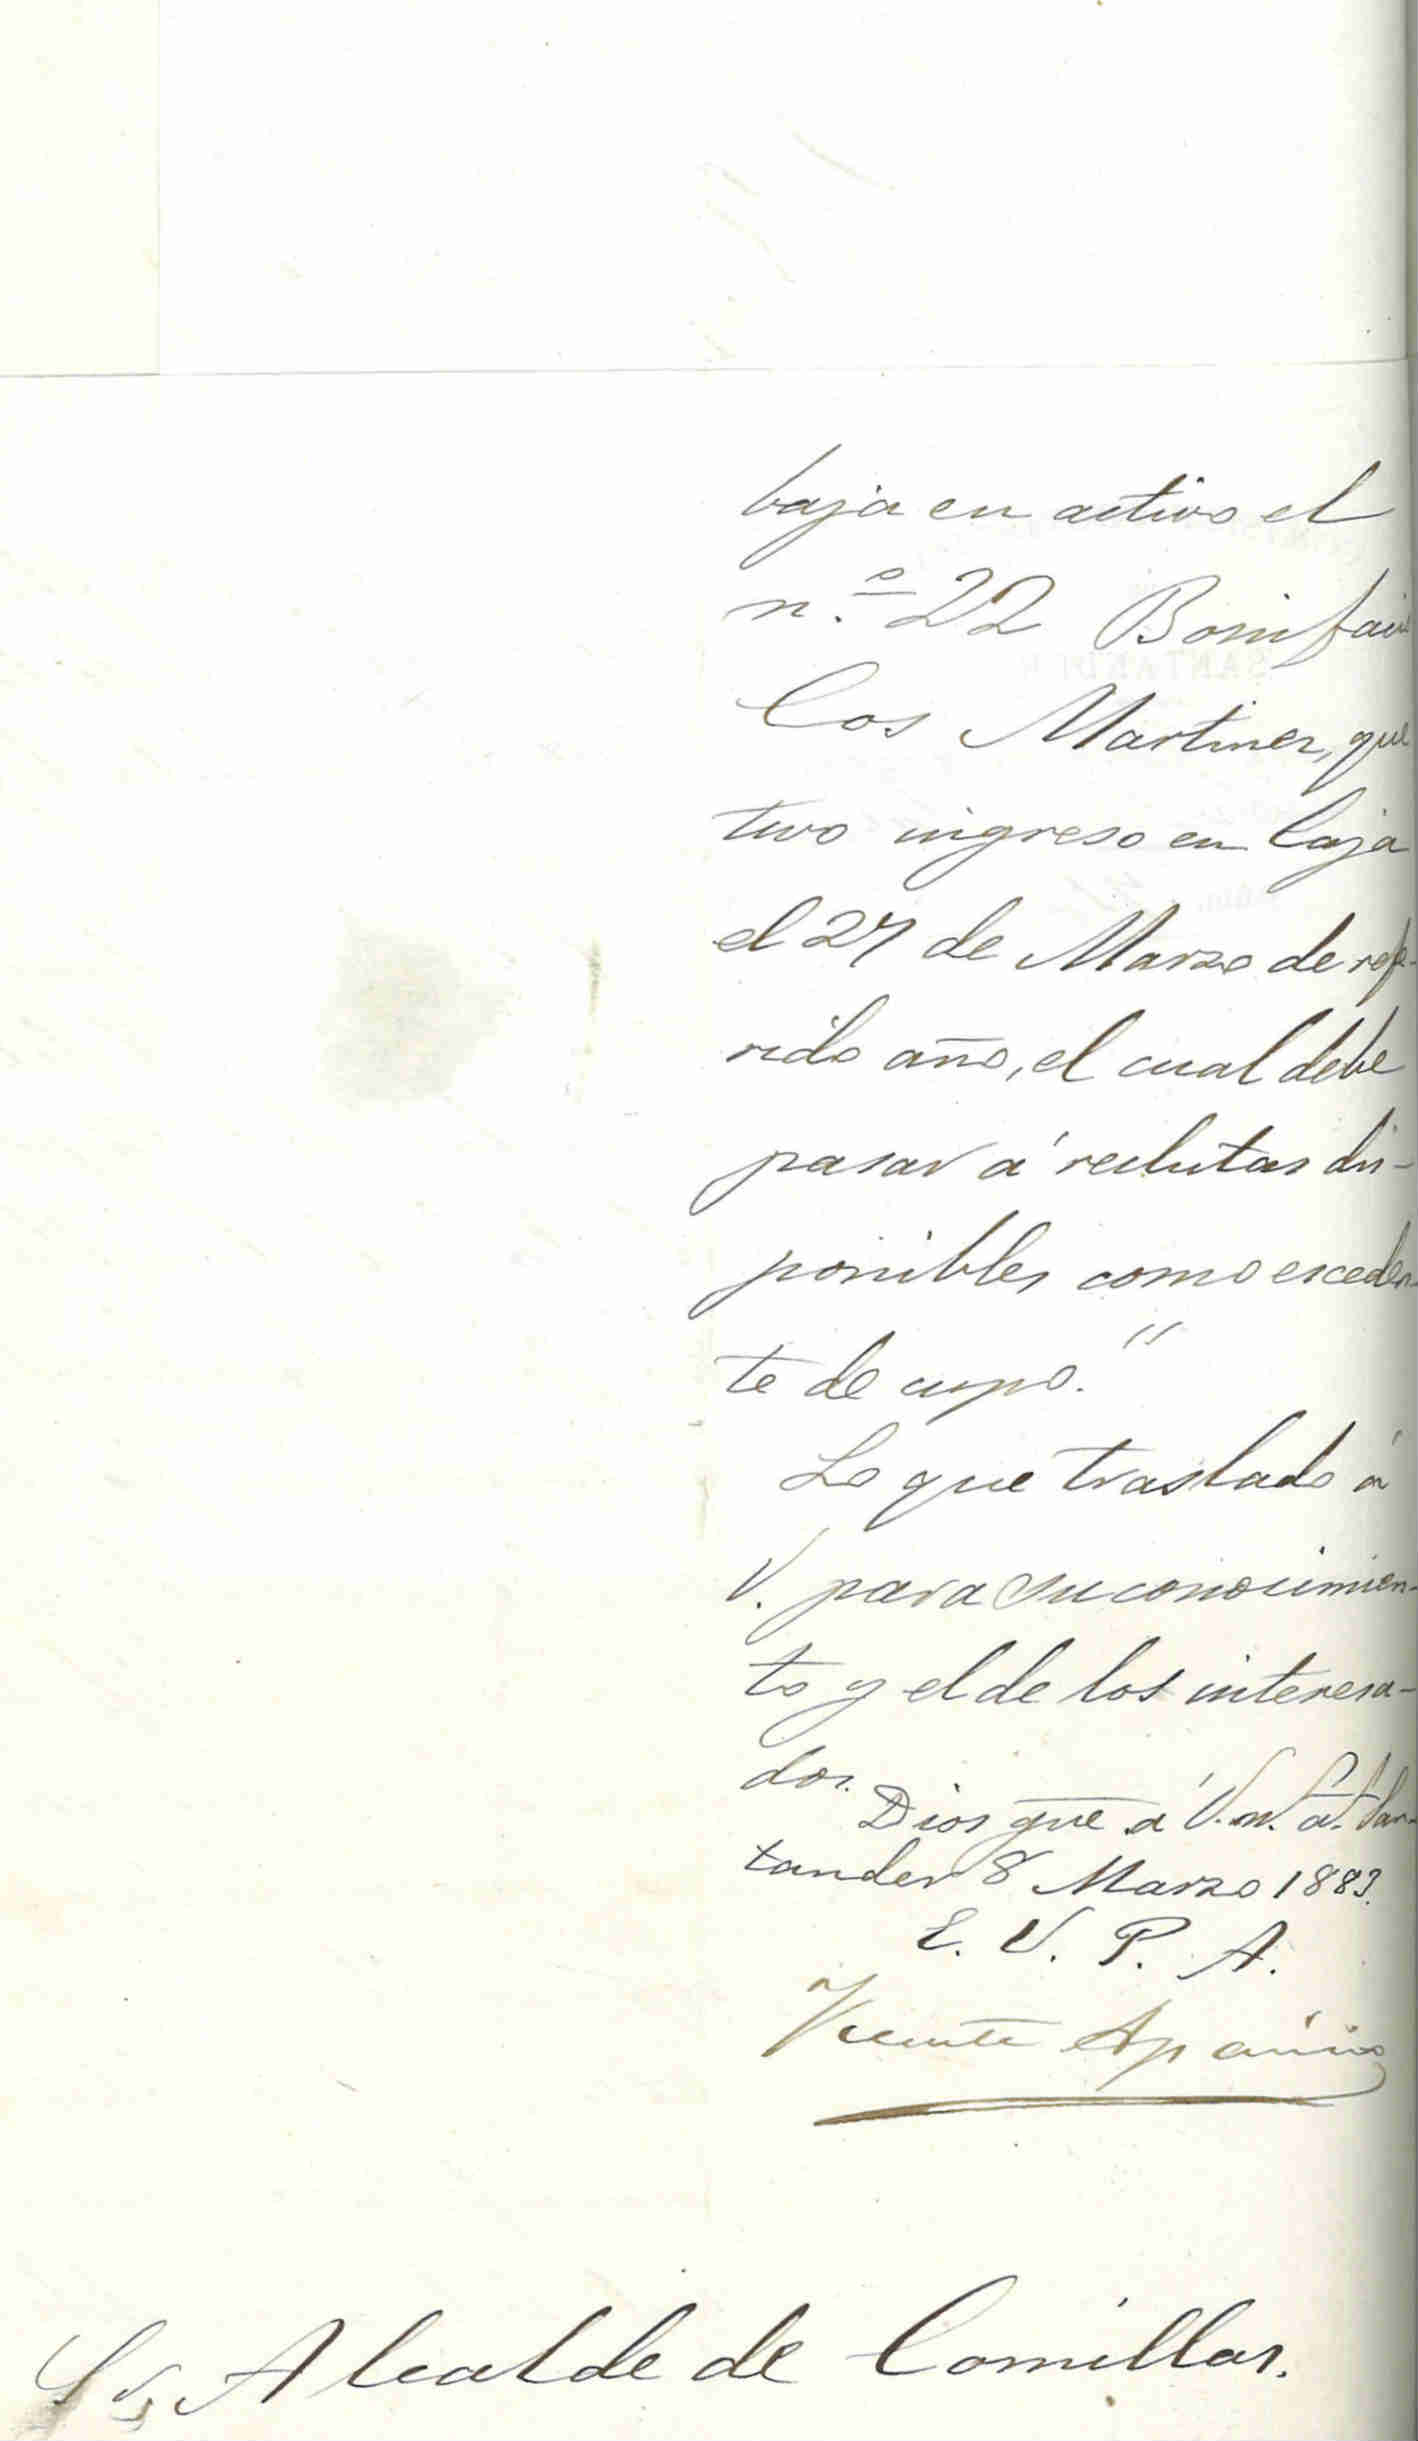 baja en activo el
n.º 22 Bonifaci
Cos Martinez, que
tuvo ingreso en Caja
el 27 de Marzo de refe-
rido año, el cual debe
pasar á reclutas dis-
ponibles como esceden-
te de cupo."
Lo que traslado á
V. para su conocimien-
to y el de los interesa-
dos.
Dios gue á V. m. a. San-
tander 8 Marzo 1883.
E. V. P. A.
Vicente Aparicio
Sr. Alcalde de Comillas.